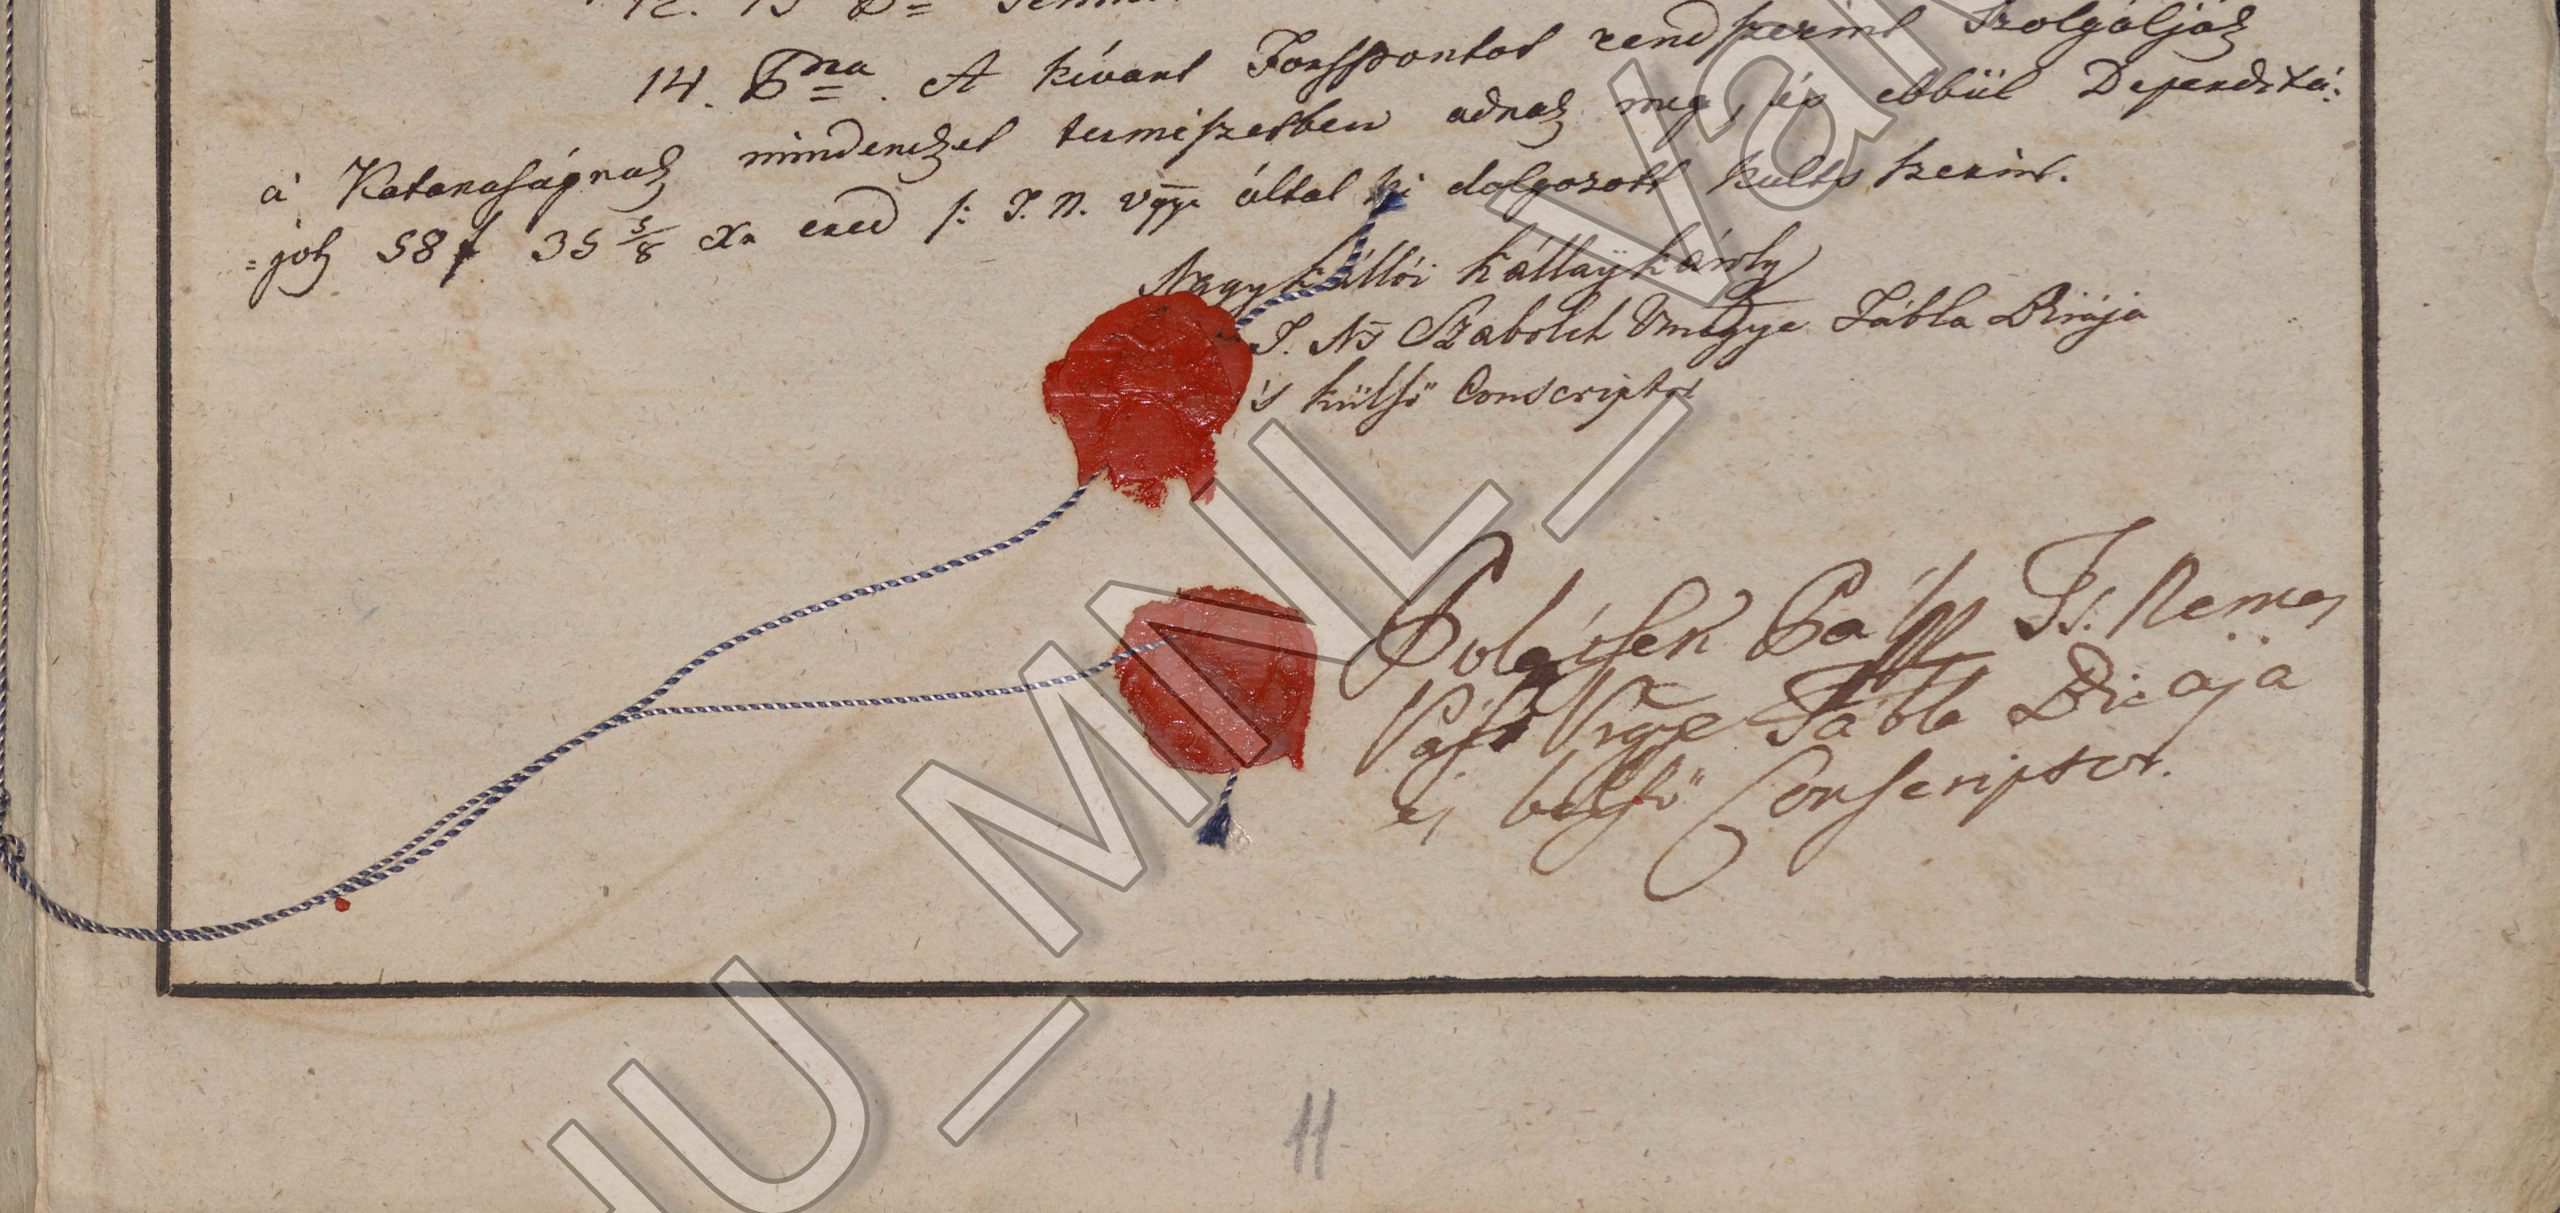 14. Dna. A kívant Forspontot rendszerint Szolgáljak
a' Katonaságnak mindeneket termiszetben adnak meg, és ebbül Deperditá:
=jok 58 f 35 5/8 Xr ered /: T. N. Vgye által ki dolgozott kults szerint.
Nagy Kállói Kállaÿ Károly
T. Ns Szabolch Vmegye Tábla Birája
's külső Conscriptor
Pál Ts. Nemes
Vgye Tábla Birája
es belső Conscriptor.
11
HU_MNL_